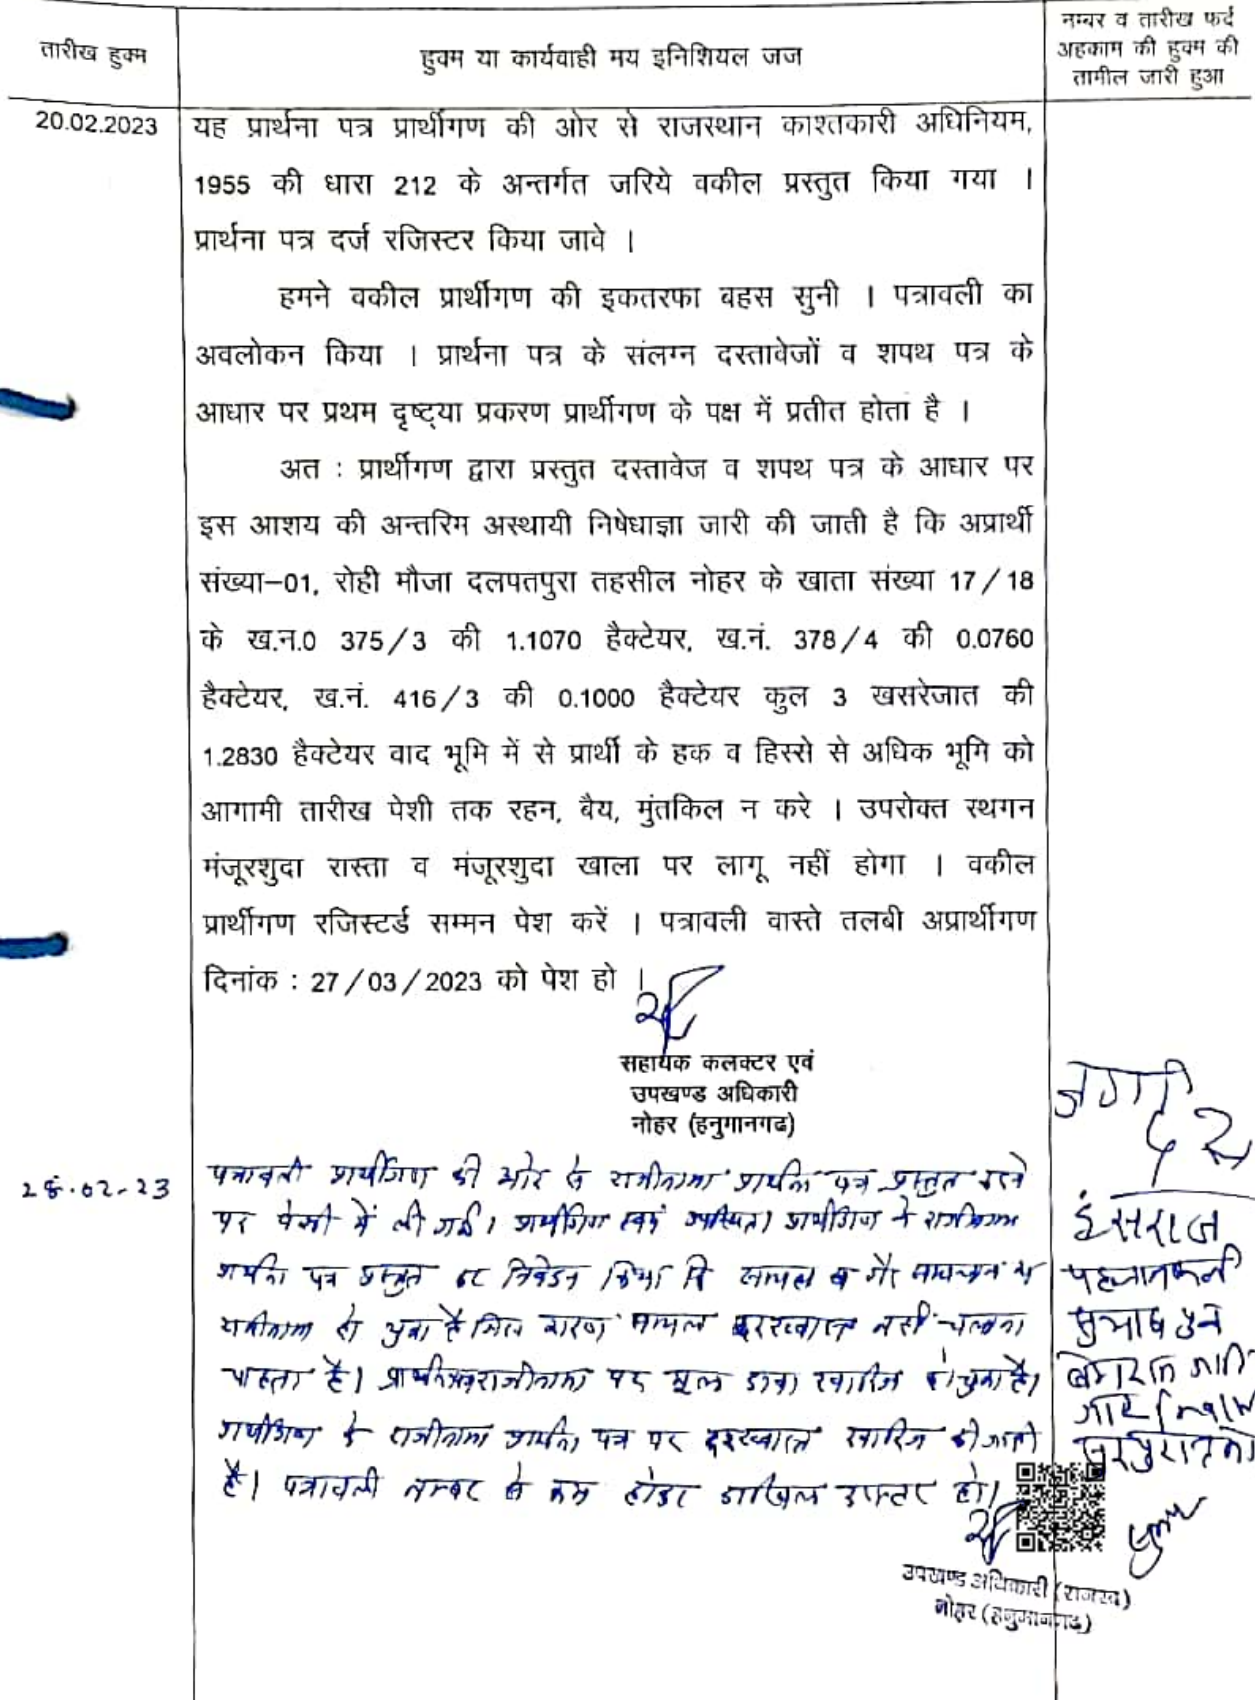 तारीख हुक्म
हुक्म या कार्यवाही मय इनिशियल जज
नम्बर व तारीख फर्द
अहकाम की हुक्म की
तामील जारी हुआ
20.02.2023
यह प्रार्थना पत्र प्रार्थीगण की ओर से राजस्थान काश्तकारी अधिनियम,
1955 की धारा 212 के अन्तर्गत जरिये वकील प्रस्तुत किया गया ।
प्रार्थना पत्र दर्ज रजिस्टर किया जावे ।
हमने वकील प्रार्थीगण की इकतरफा बहस सुनी । पत्रावली का
अवलोकन किया । प्रार्थना पत्र के संलग्न दस्तावेजों व शपथ पत्र के
आधार पर प्रथम दृष्ट्या प्रकरण प्रार्थीगण के पक्ष में प्रतीत होता है ।
अत : प्रार्थीगण द्वारा प्रस्तुत दस्तावेज व शपथ पत्र के आधार पर
इस आशय की अन्तरिम अस्थायी निषेधाज्ञा जारी की जाती है कि अप्रार्थी
संख्या–01, रोही मौजा दलपतपुरा तहसील नोहर के खाता संख्या 17/18
के ख.न.0 375/3 की 1.1070 हैक्टेयर, ख.नं. 378/4 की 0.0760
हैक्टेयर, ख.नं. 416/3 की 0.1000 हैक्टेयर कुल 3 खसरेजात की
1.2830 हैक्टेयर वाद भूमि में से प्रार्थी के हक व हिस्से से अधिक भूमि को
आगामी तारीख पेशी तक रहन, बैय, मुंतकिल न करे । उपरोक्त स्थगन
मंजूरशुदा रास्ता व मंजूरशुदा खाला पर लागू नहीं होगा । वकील
प्रार्थीगण रजिस्टर्ड सम्मन पेश करें । पत्रावली वास्ते तलबी अप्रार्थीगण
दिनांक : 27/03/2023 को पेश हो ।
सहायक कलक्टर एवं
उपखण्ड अधिकारी
नोहर (हनुगानगढ)
28.02-23
पत्रावली प्रार्थीगण की ओर से राजीनामा प्रार्थना पत्र प्रस्तुत करने
पर पेशी में ली गई। प्रार्थीगण स्वयं उपस्थित। प्रार्थीगण ने राजीनामा
प्रार्थना पत्र प्रस्तुत कर निवेदन किया कि
राजीनामा हो चुका है जिस कारण दरख्वास्त नहीं चलाना
चाहता है। राजीनामा पर मूल दावा खारिज हो चुका है।
प्रार्थीगण के राजीनामा प्रार्थना पत्र पर दरख्वास्त खारिज की जाती
है। पत्रावली नम्बर से कम होकर दाखिल दफ्तर हो।
हंसराज
उपखण्ड अधिकारी (राजस्व)
नोहर (हनुमानगढ)